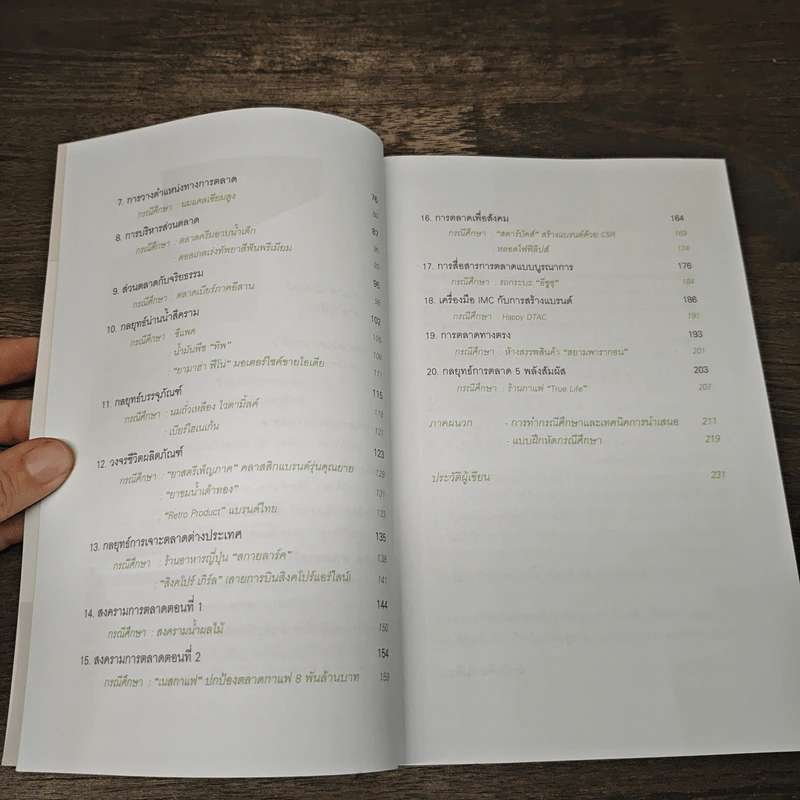 7. การวางตำแหน่งทางการตลาด 76
กรณีศึกษา : นมแคลเซียมสูง 80
8. การบริหารส่วนตลาด 87
กรณีศึกษา : ตลาดครีมอาบน้ำเด็ก 90
: คอลเกตเร่งทัพยาสีฟันพรีเมียม
9. ส่วนตลาดกับจริยธรรม 95
กรณีศึกษา : ตลาดเบียร์ภาคอีสาน 98
10. กลยุทธ์น่านน้ำสีคราม 102
กรณีศึกษา : ซีแพค 105
: น้ำมันพืช "ทิพ" 108
: "ยามาฮ่า ฟีโน่" มอเตอร์ไซค์ขายไอเดีย 111
11. กลยุทธ์บรรจุภัณฑ์ 115
กรณีศึกษา : นมถั่วเหลือง ไวตามิ้ลค์ 118
: เบียร์ไฮเนเก้น 121
12. วงจรชีวิตผลิตภัณฑ์ 123
กรณีศึกษา : "ยาสตรีเพ็ญภาค" คลาสสิกแบรนด์รุ่นคุณยาย 129
: "ยาขมน้ำเต้าทอง" 131
: "Retro Product" แบรนด์ไทย 133
13. กลยุทธ์การเจาะตลาดต่างประเทศ 135
กรณีศึกษา : ร้านอาหารญี่ปุ่น "สกายลาร์ค" 138
: "สิงคโปร์ เกิร์ล" (สายการบินสิงคโปร์แอร์ไลน์) 141
14. สงครามการตลาดตอนที่ 1 144
กรณีศึกษา : สงครามน้ำผลไม้ 150
15. สงครามการตลาดตอนที่ 2 154
กรณีศึกษา : "เนสกาแฟ" ปกป้องตลาดกาแฟ 8 พันล้านบาท 159
16. การตลาดเพื่อสังคม 164
กรณีศึกษา : "สตาร์บัคส์" สร้างแบรนด์ด้วย CSR 169
: หลอดไฟฟิลิปส์ 174
17. การสื่อสารการตลาดแบบบูรณาการ 176
กรณีศึกษา : รถกระบะ "อีซูซุ" 184
18. เครื่องมือ IMC กับการสร้างแบรนด์ 186
กรณีศึกษา : Happy DTAC 191
19. การตลาดทางตรง 193
กรณีศึกษา : ห้างสรรพสินค้า "สยามพารากอน" 201
20. กลยุทธ์การตลาด 5 พลังสัมผัส 203
กรณีศึกษา : ร้านกาแฟ "True Life" 207
ภาคผนวก - การทำกรณีศึกษาและเทคนิคการนำเสนอ 211
- แบบฝึกหัดกรณีศึกษา 219
ประวัติผู้เขียน 231